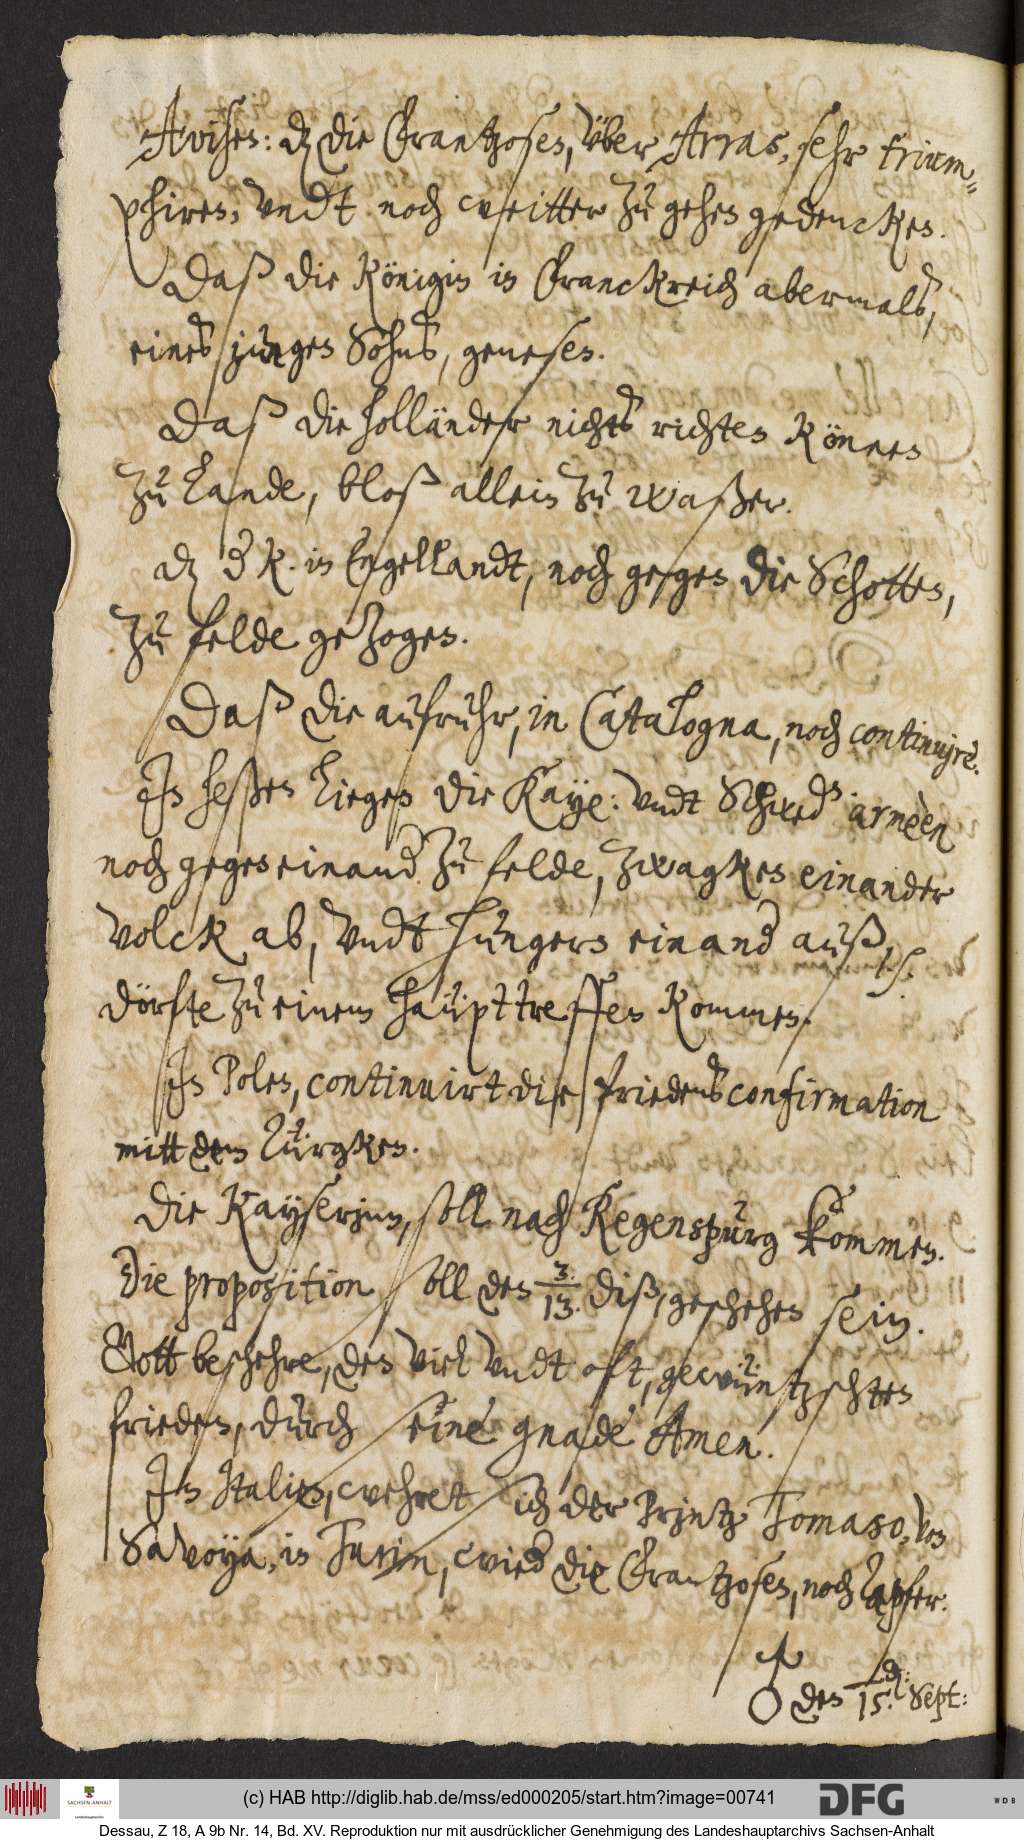 Avisen: dz die Frantzosen, vber Arras, sehr trium-
phiren, vndt noch weitter zu gehen gedencken.
Daß die Königin in Franckreich abermals,
eines jungen Sohns, genesen.
Daß die Holländer nichts richten können
zu Lande, bloß allein zu waßer.
dz d K. in Engellandt, noch gegen die Schotten,
zu felde gezogen.
Daß die aufruhr, in Catalogna, noch continuire.
In Heßen liegen die Kaye: vndt Schwed. armèen
noch gegen einand. zu felde, zwagken einander
volck ab, vndt hungern einand auß,
dörfte zu einem haupttreffen kommen.
In Polen, continuirt die friedensconfirmation
mitt dem Türgken.
Die Kayserinn, soll nach Regenspurg kommen.
Die proposition soll den 3./13. diß, geschehen sein.
Gott beschehre, den viel vndt oft, gewüntzschten
frieden, durch seine gnade Amen.
In Italien, wehret sich der Printz Tomaso, von
Savoya, in Turin, wied die Frantzosen, noch tapfer.
den 15. Sept:
(c) HAB http://diglib.hab.de/mss/ed000205/start.htm?image=00741
SACHSEN-ANHALT
DFG
WDB
Dessau, Z 18, A 9b Nr. 14, Bd. XV. Reproduktion nur mit ausdrücklicher Genehmigung des Landeshauptarchivs Sachsen-Anhalt